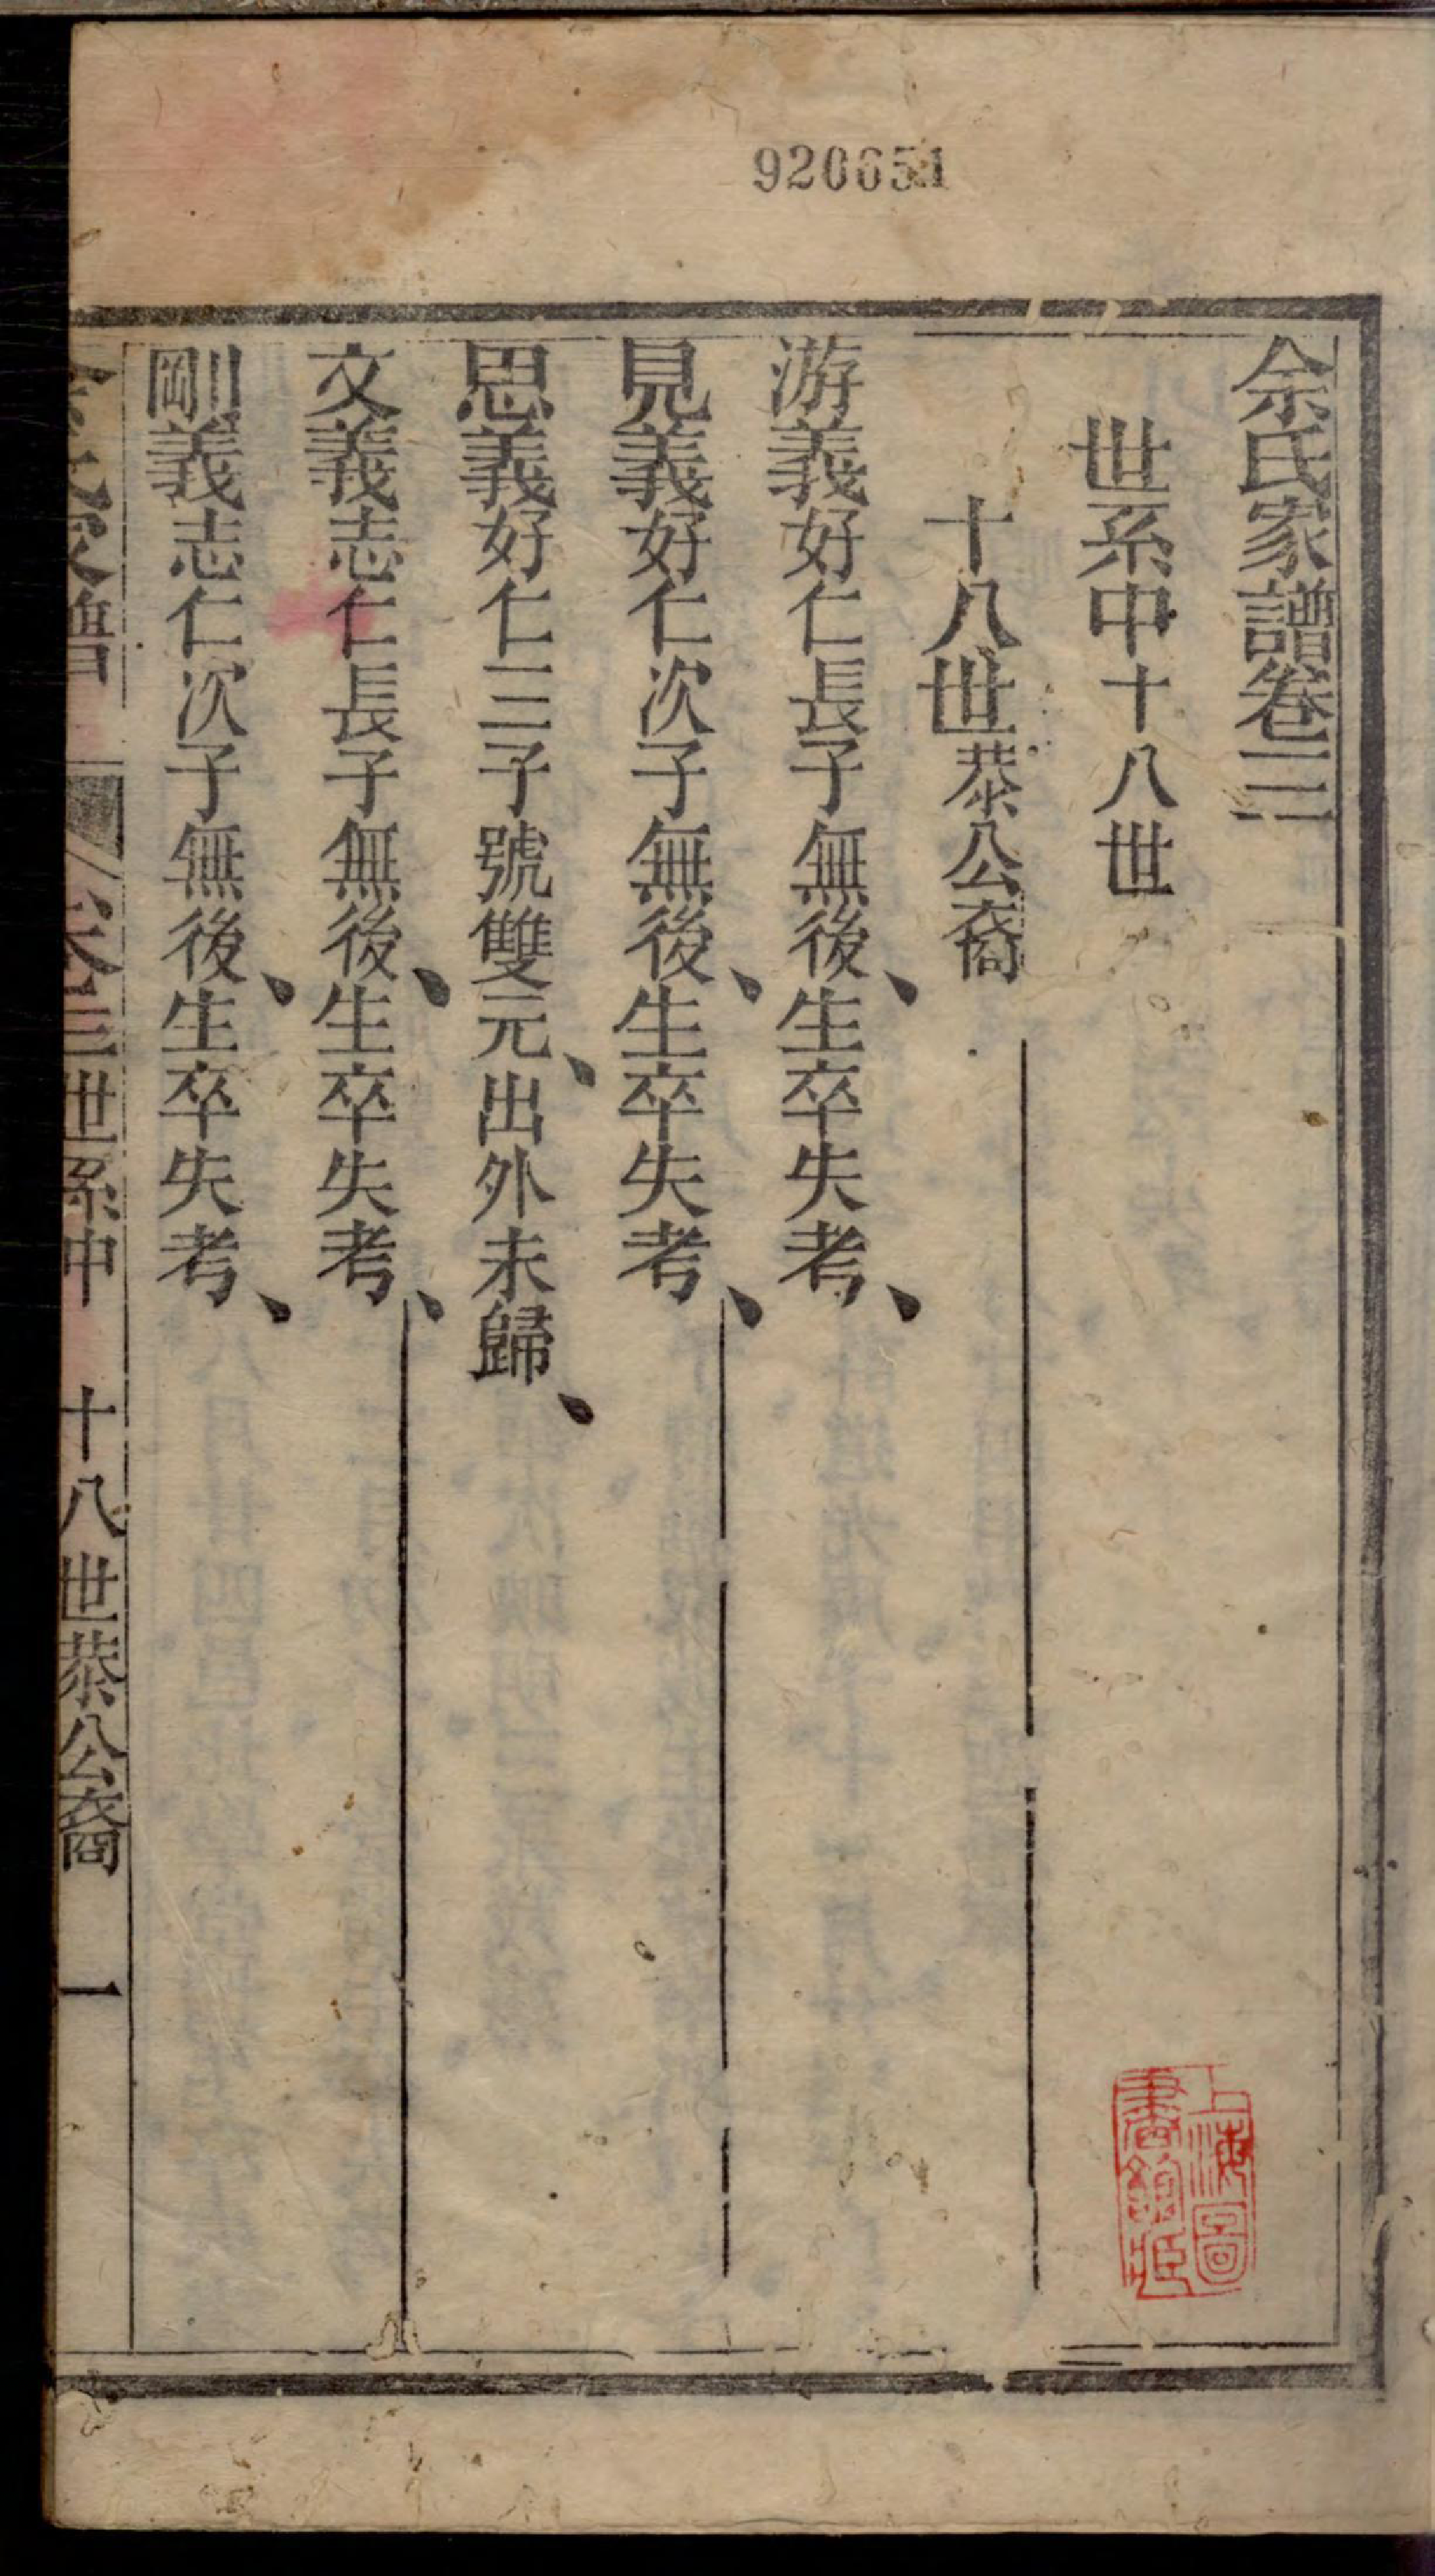 920651
余氏家譜卷三
世系中十八世
十八世恭公裔
游義好仁長子無後、生卒失考、
見義好仁次子無後、生卒失考、
思義好仁三子號雙元、出外未歸、
文義志仁長子無後、生卒失考、
剛義志仁次子無後、生卒失考、
余氏家譜 卷三世系中 十八世恭公裔 一
上海圖
書館臧